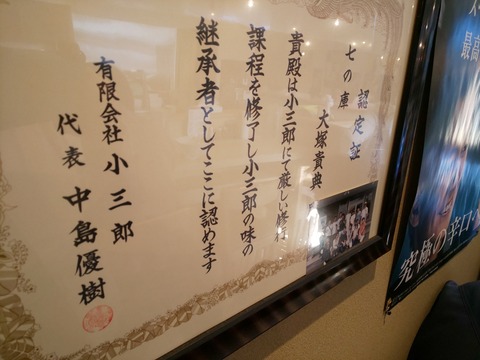 認定証
七の庫
大塚貴典
貴殿は小三郎にて厳しい修行
課程を修了し小三郎の味の
継承者としてここに認めます
有限会社 小三郎
代表 中島優樹
最高
究極の辛口